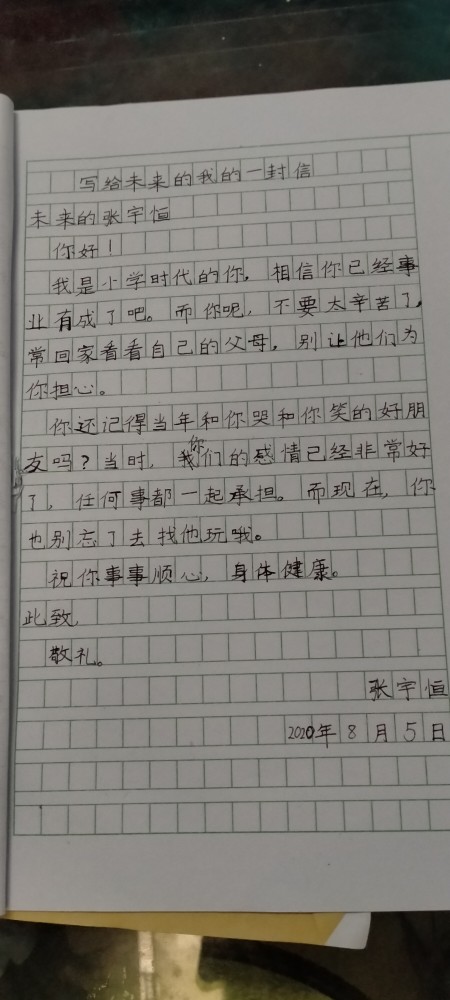 写给未来的我的一封信
未来的张宇恒
你好！
我是小学时代的你，相信你已经事
业有成了吧。而你呢，不要太辛苦了，
常回家看看自己的父母，别让他们为
你担心。
你还记得当年和你哭和你笑的好朋
友吗？当时，你们的感情已经非常好
了，任何事都一起承担。而现在，你
也别忘了去找他玩哦。
祝你事事顺心，身体健康。
此致，
敬礼。
张宇恒
2020年8月5日